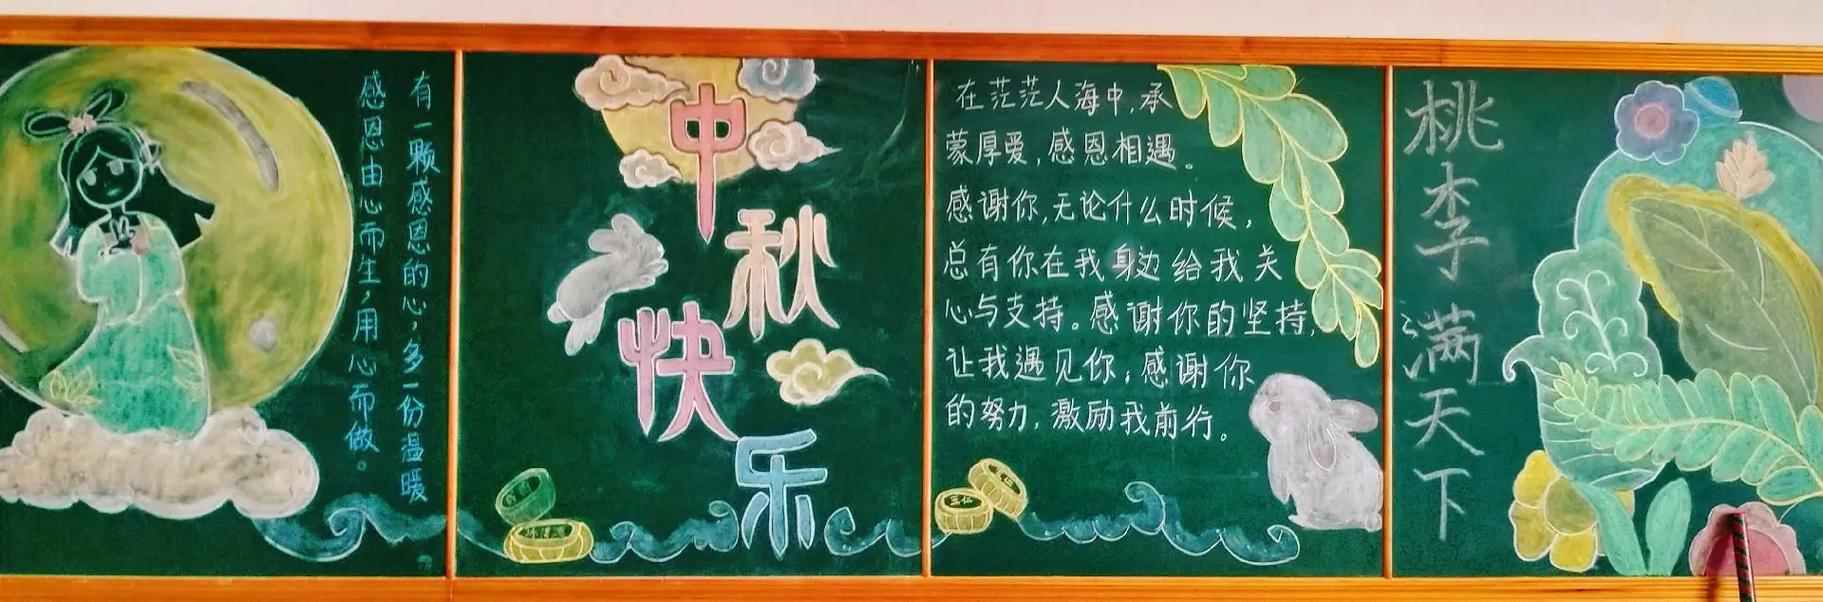 有一颗感恩的心，多一份温暖
感恩由心而生，用心而做。
中秋
快乐
在茫茫人海中，承
蒙厚爱，感恩相遇。
感谢你，无论什么时候，
总有你在我身边给我关
心与支持。感谢你的坚持，
让我遇见你；感谢你
的努力，激励我前行。
五仁
五仁
桃李满天下